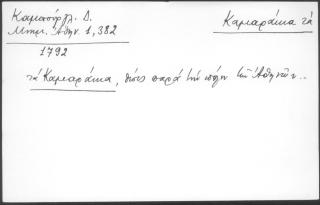 Καμπούρογλ. Δ.
Μνημ. Αθην. 1,382
1792
Καμαράκια τά
τά Καμαράκια, θέσις παρά τήν πόλιν τῶν Ἀθηνῶν..